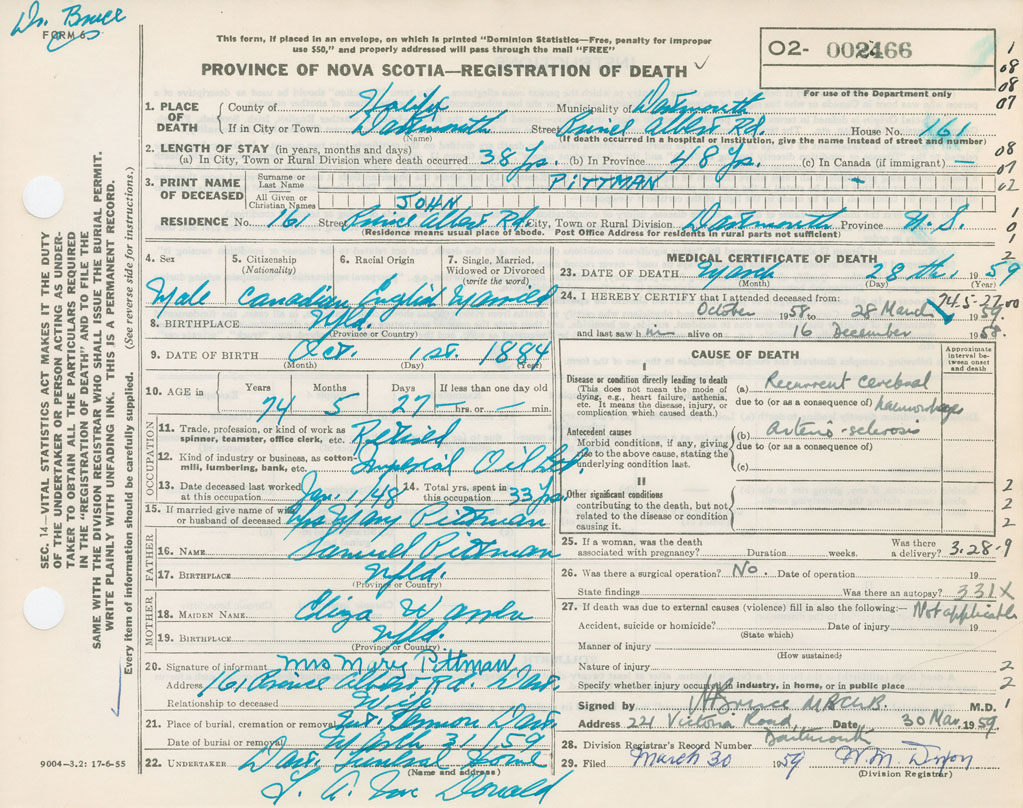 Dr. Bruce
FORM 6
This form, if placed in an envelope, on which is printed "Dominion Statistics—Free, penalty for improper
use $50," and properly addressed will pass through the mail "FREE"
PROVINCE OF NOVA SCOTIA—REGISTRATION OF DEATH
O2- 002466
For use of the Department only
1
08
08
07
1. PLACE OF DEATH
County of Halifax Municipality of Dartmouth
If in City or Town Dartmouth Street Prince Albert Rd. House No. 161
(Name) (If death occurred in a hospital or institution, give the name instead of street and number)
2. LENGTH OF STAY (in years, months and days)
(a) In City, Town or Rural Division where death occurred 38 Yrs. (b) In Province 48 Yrs. (c) In Canada (if immigrant) —
08
07
02
3. PRINT NAME OF DECEASED
Surname or Last Name PITTMAN
All Given or Christian Names JOHN
RESIDENCE No. 161 Street Prince Albert Rd. City, Town or Rural Division Dartmouth Province N.S.
(Residence means usual place of abode. Post Office Address for residents in rural parts not sufficient)
1
0
1
2
4. Sex Male
5. Citizenship (Nationality) Canadian
6. Racial Origin English
7. Single, Married, Widowed or Divorced (write the word) Married
8. BIRTHPLACE Nfld.
(Province or Country)
9. DATE OF BIRTH Oct. 1st. 1884
(Month) (Day) (Year)
10. AGE in Years Months Days If less than one day old
74 5 27 — hrs. or — min.
OCCUPATION
11. Trade, profession, or kind of work as spinner, teamster, office clerk, etc. Retired
12. Kind of industry or business, as cotton-mill, lumbering, bank, etc. Imperial Oil Ltd.
13. Date deceased last worked at this occupation Jan. 1/48
14. Total yrs. spent in this occupation 33 Yrs.
15. If married give name of wife or husband of deceased Mrs Mary Pittman
FATHER
16. NAME Samuel Pittman
17. BIRTHPLACE Nfld.
(Province or Country)
MOTHER
18. MAIDEN NAME Eliza
19. BIRTHPLACE Nfld.
(Province or Country)
20. Signature of informant Mrs Mary Pittman
Address 161 Prince Albert Rd. Dart.
Relationship to deceased Wife
21. Place of burial, cremation or removal Mt. Hermon Dart.
Date of burial or removal March 31/59
22. UNDERTAKER Dart. Funeral Home
(Name and address)
Donald
MEDICAL CERTIFICATE OF DEATH
23. DATE OF DEATH March 28th. 1959
(Month) (Day) (Year)
24. I HEREBY CERTIFY that I attended deceased from:
74.5-27.00
October 1958 to 28 March 1959.
and last saw him alive on 16 December 1958.
CAUSE OF DEATH
Approximate interval between onset and death
I
Disease or condition directly leading to death
(This does not mean the mode of dying, e.g., heart failure, asthenia, etc. It means the disease, injury, or complication which caused death.)
(a) Recurrent Cerebral
due to (or as a consequence of) haemorrhage
Antecedent causes
Morbid conditions, if any, giving rise to the above cause, stating the underlying condition last.
(b) arterio-sclerosis
due to (or as a consequence of)
(c)
II
Other significant conditions
contributing to the death, but not related to the disease or condition causing it.
2
2
2
25. If a woman, was the death associated with pregnancy? Duration weeks. Was there a delivery? 3-28-9
26. Was there a surgical operation? No. Date of operation 19
State findings Was there an autopsy? 331X
27. If death was due to external causes (violence) fill in also the following:— Not applicable
Accident, suicide or homicide? Date of injury 19
(State which)
Manner of injury
(How sustained)
Nature of injury 2
Specify whether injury occurred in industry, in home, or in public place 2
Signed by H Bruce M.D. 1
Address 221 Victoria Road, Date 30 Mar. 1959.
Dartmouth
28. Division Registrar's Record Number
29. Filed March 30 1959 W.M. Dixon
(Division Registrar)
SEC. 14—VITAL STATISTICS ACT MAKES IT THE DUTY
OF THE UNDERTAKER OR PERSON ACTING AS UNDER-
TAKER TO OBTAIN ALL THE PARTICULARS REQUIRED
IN THE "REGISTRATION OF DEATH" AND TO FILE THE
SAME WITH THE DIVISION REGISTRAR WHO SHALL ISSUE THE BURIAL PERMIT.
WRITE PLAINLY WITH UNFADING INK. THIS IS A PERMANENT RECORD.
Every item of information should be carefully supplied. (See reverse side for instructions.)
9004-3.2: 17-6-55